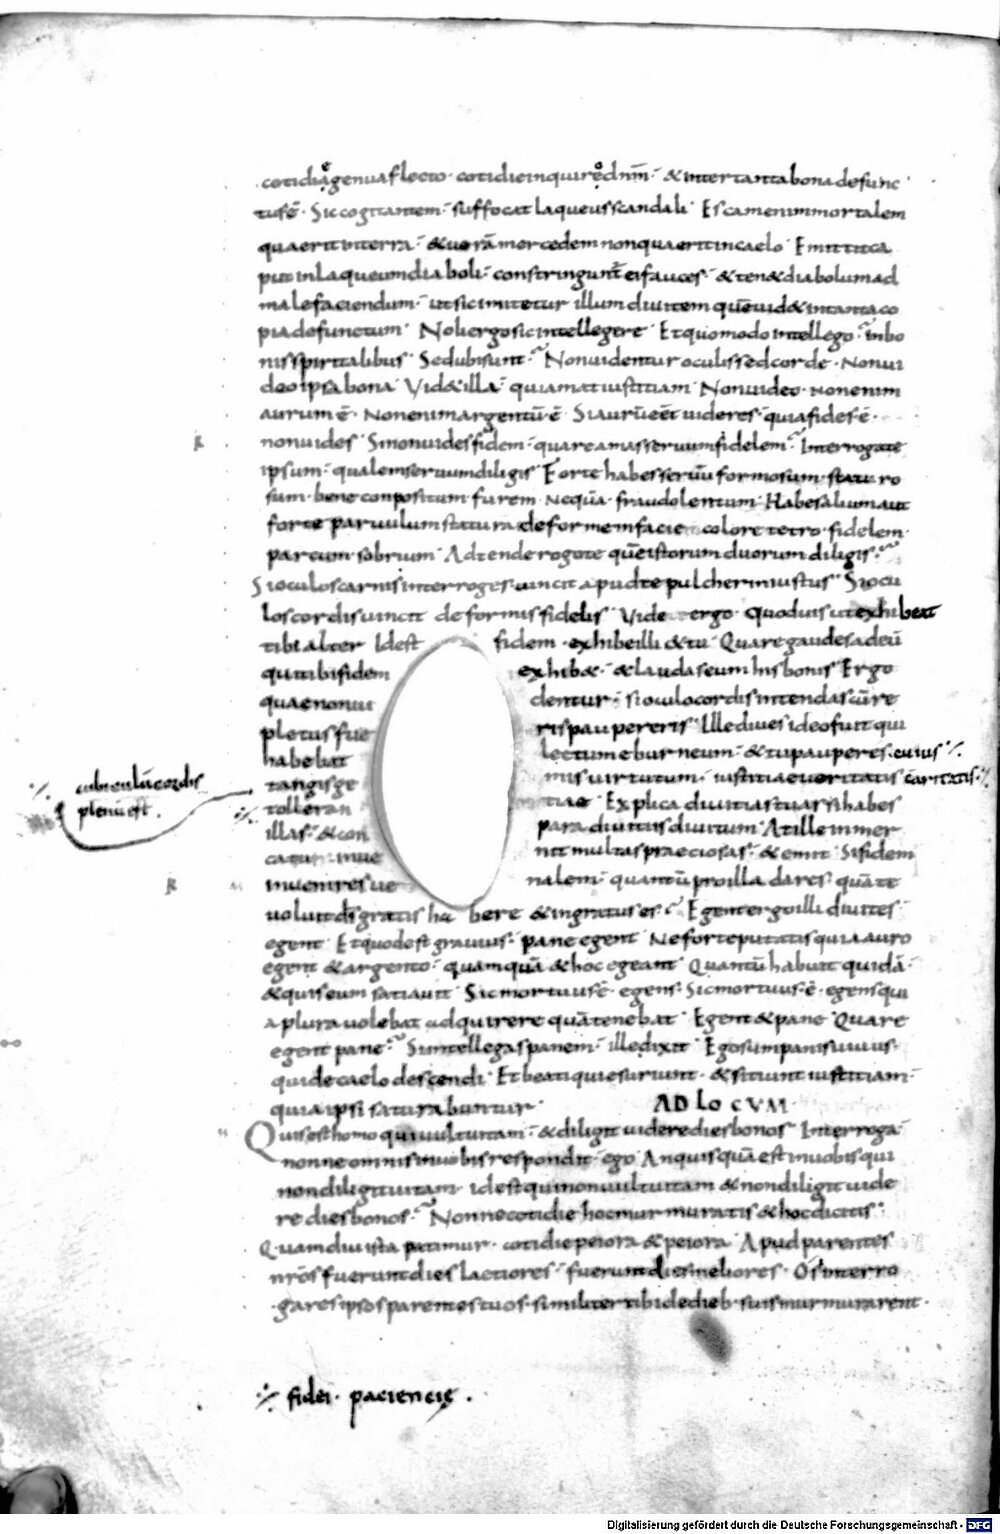 cotidiȩ genua flecto · cotidie inquiro dnm̄ · & inter tanta bona defunc
tus ē · Sic cogitantem · suffocat laqueus scandali · Escam enim mortalem
quaerit in terra · & ueram mercedem non quaerit in caelo · Emittit ca
put in laqueum diaboli · constringunt̄ ei fauces · & ten& diabolum ad
male faciendum · ut sic imitetur illum diuitem quē uid& in tanta co
pia defunctum · Noli ergo sic intellegere · Et quomodo intellego · in bo
nis spiritalibus · Sed ubi sunt · Non uidentur oculis sed corde · Non ui
deo ipsa bona · Vid& illa · qui amat iustitiam · Non uideo · non enim
aurum ē · Non enim argentū ē · Si aurū eēt uideres · quia fides ē ·
non uides · Si non uides fidem · quare amas seruum fidelem · Interroga te
ipsum · qualem seruum diligis · Forte habes seruū formosum · staturo
sum · bene conpositum · furem · nequā · fraudolentum · Habes alium aut
forte paruulum statura · deformem facie · colore tetro · fidelem ·
parcum · sobrium · Adtende rogo te · quē istorum duorum diligis ·
Si oculos carnis interroges · uincit apud te pulcher iniustus · Si ocu
los cordis uincit deformis fidelis · Vide ergo · Quod uis ut exhibeat
tibi alter · Id est fidem · exhibe illi & tu · Quare gaudes ad eū
qui tibi fidem exhib& · & laudas eum in his bonis · Ergo
quae non ui dentur · si oculo cordis intendas cūre
pletus fue ris paupereris · Ille diues ideo fuit qui
habebat lectum eburneum · & tu pauperes · cuius ·/·
cubiculū cordis
plenū est ·
tangis ge mis uirtutum · iustitiae ueritatis caritatis ·/·
tolleran tiae · Explica diuitias tuas si habes
illas · & con para diuitiis diuitum · At ille in mer
catum inue nit multas praeciosas · & emit · Si fidem
inuenires ue nalem · quantū pro illa dares · quā te
uoluit dš gratis ha bere & ingratus es · Egent ergo illi diuites ·
egent · Et quod est grauius · pane egent · Ne forte putatis quia auro
egent & argento · quamquā & hoc egeant · Quantū habuit quidā ·
& quis eum satiauit · Sic mortuus ē · egens · Sic mortuus ē · egens qui
a plura uolebat adquirere quā tenebat · Egent & pane · Quare
egent pane · Si intellegas panem · ille dixit · Ego sum panis uiuus ·
qui de caelo descendi · Et beati qui esuriunt · & sitiunt iustitiam ·
quia ipsi saturabuntur · AD LOCVM
Quis est homo qui uult uitam · & diligit uidere dies bonos · Interroga
nonne omnis in uobis respondit · ego · An quisquā est in uobis qui
non diligit uitam · id est qui non uult uitam & non diligit uide
re dies bonos · Nonne cotidie hoc murmuratis & hoc dicitis ·
Quam diu ista patimur · cotidie peiora & peiora · Apud parentes
nr̄os fuerunt dies laetiores · fuerunt dies meliores · O si interro
gares ipsos parentes tuos · similiter tibi de dieb · suis murmurarent ·
·/· fidei · pacienciȩ ·
Digitalisierung gefördert durch die Deutsche Forschungsgemeinschaft - DFG